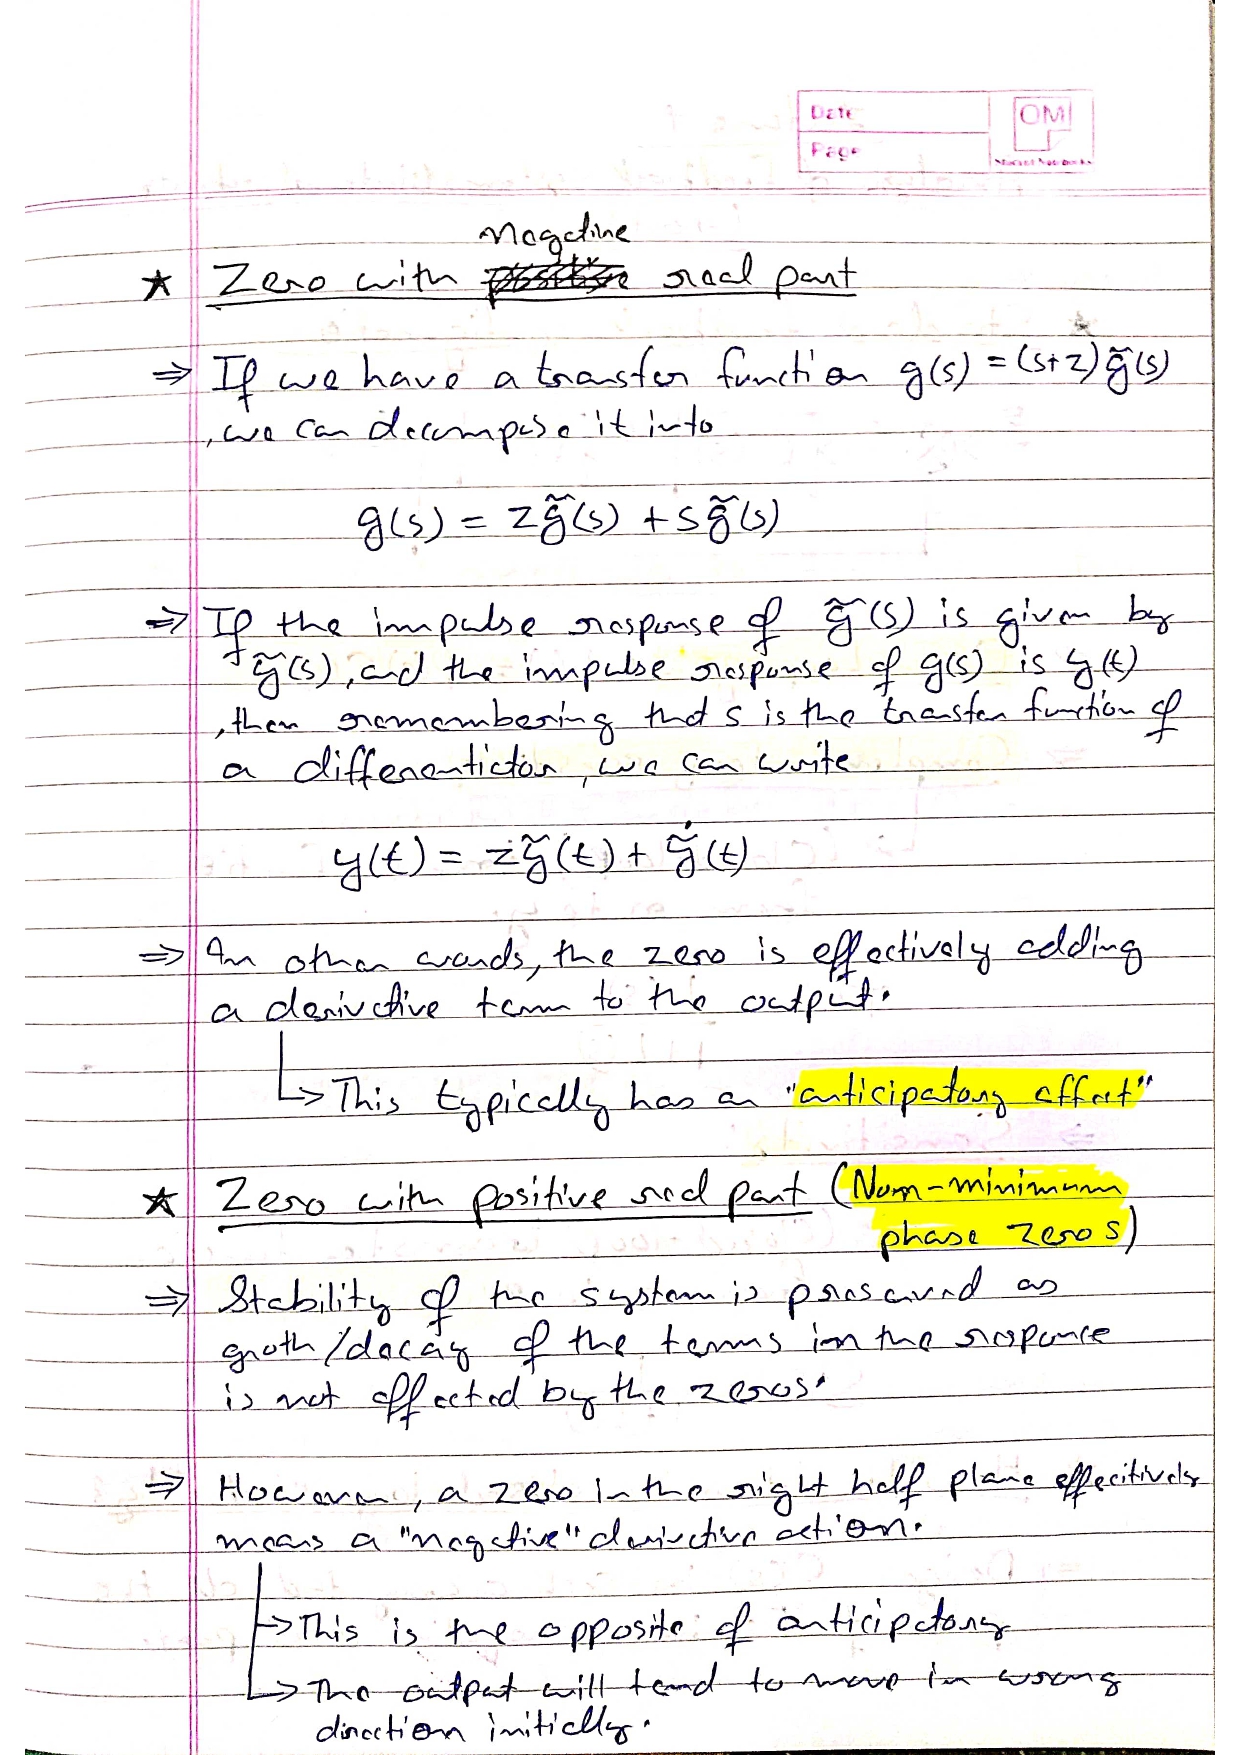 Date
OM
Page
Negative
★ Zero with real part
⇒ If we have a transfer function g(s) = (s+z) g̃(s)
, we can decompose it into
g(s) = z g̃(s) + s g̃(s)
⇒ If the impulse response of g̃(s) is given by
ỹ(s), and the impulse response of g(s) is y(t)
, then remembering that s is the transfer function of
a differentiator, we can write
y(t) = zỹ(t) + ỹ̇(t)
⇒ In other words, the zero is effectively adding
a derivative term to the output.
↳ This typically has an "anticipatory effect"
★ Zero with positive real part (Non-minimum
phase zeros)
⇒ Stability of the system is preserved as
groth/decay of the terms in the responce
is not affected by the zeros.
⇒ However, a zero in the right half plane effecitively
means a "negative" derivative action.
↳ This is the opposite of anticipatory
↳ The output will tend to move in wrong
direction initially.